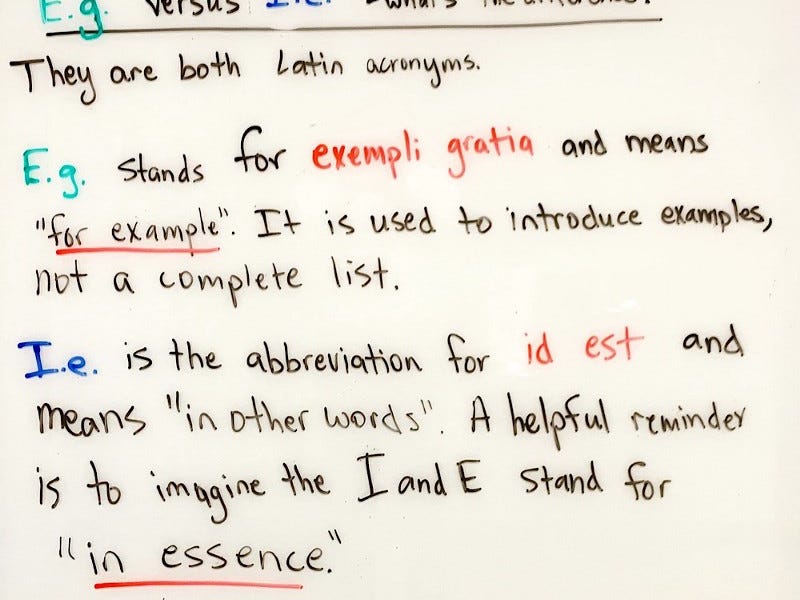 E.g. versus I.e. - what's the difference?
They are both Latin acronyms.
E.g. stands for exempli gratia and means
"for example". It is used to introduce examples,
not a complete list.
I.e. is the abbreviation for id est and
means "in other words". A helpful reminder
is to imagine the I and E stand for
"in essence."